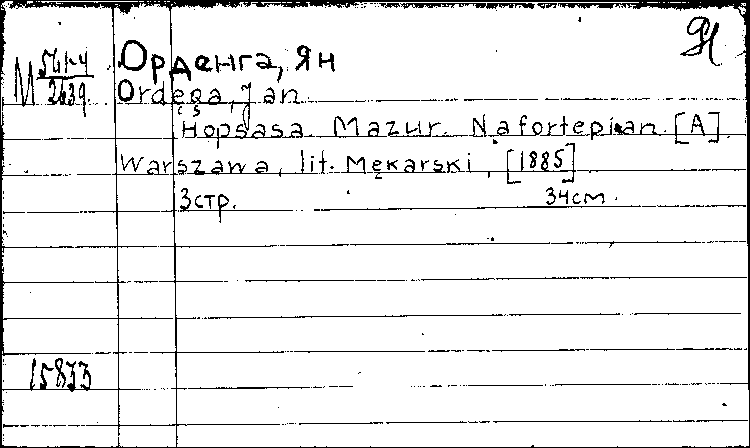 Я
М 561-4
2639
Орденга, Ян
Ordęga, Jan
Hopsasa. Mazur. Na fortepian. [A].
Warszawa, lit. Mękarski, [1885]
3стр. 34см.
15833